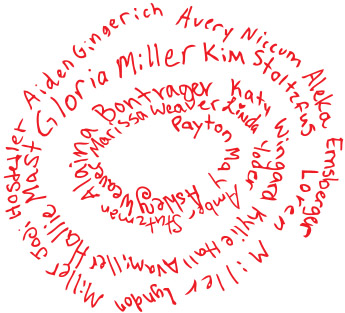 Payton May
Ashley Weaver
Marissa Weaver
Linda Yoder
Amber Stutzman
Alaina Bontrager
Katy Wingard
Kylie Hall
Ava Miller
Hallie Mast
Gloria Miller
Kim Stoltzfus
Loren Miller
Lyndon Miller
Joei Hostetler
Aiden Gingerich
Avery Niccum
Aleka Ernsberger